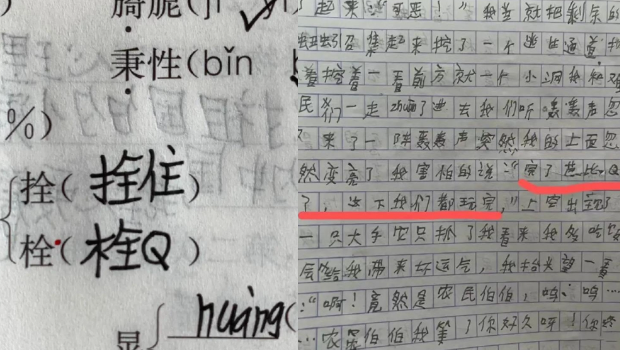 脆(
秉性(bǐn
%)
拴(拴住)
栓(栓Q)
显 huàng(
起来:"可恶!"我并 就把剩余的
蚯蚓召集起来挖了一个逃生通道,挖
着挖着一看前方就一个小洞我和难
民们一起 动了进去我们听 轰轰声忽
了来了一阵轰轰声突然我的上面忽
然变亮了我害怕的说:"完了芭比Q
了,当下我们都玩完,"上空出现了
一只大手农只抓了我看来我
会给我带来好运气,我抬头望一看
:"啊!竟然是农民伯伯,呜:呜……
…农民伯伯我等了你好久呀!你终